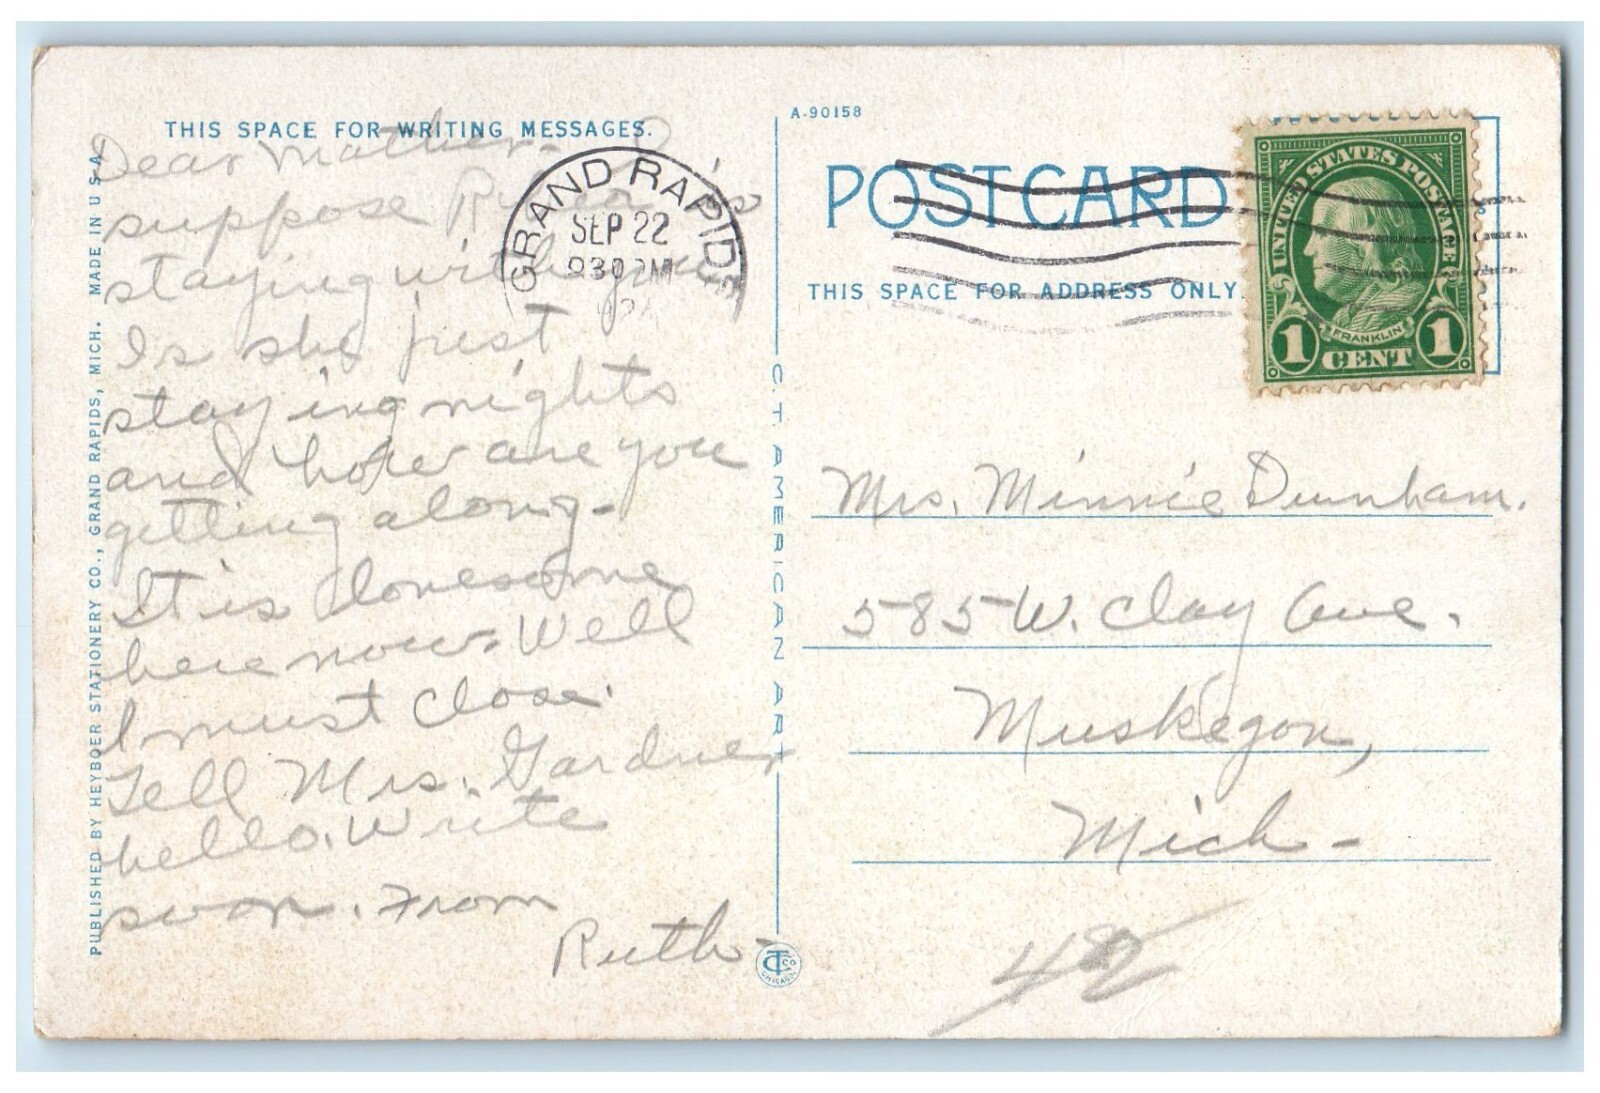 THIS SPACE FOR WRITING MESSAGES.
Dear Mother-
suppose is
staying with you
Is she just
staying nights
and how are you
getting along-
It is lonesome
here now. Well
I must close.
Tell Mrs. Gardner
hello. Write
soon. From
Ruth-
PUBLISHED BY HEYBOER STATIONERY CO., GRAND RAPIDS, MICH. MADE IN U S A
GRAND RAPIDS
SEP 22
C.T. AMERICAN ART
CHICAGO
A-90158
POST CARD
THIS SPACE FOR ADDRESS ONLY.
UNITED STATES POSTAGE
FRANKLIN
1 CENT 1
Mrs. Minnie Dunham.
585 W. Clay Ave.
Muskegon,
Mich-